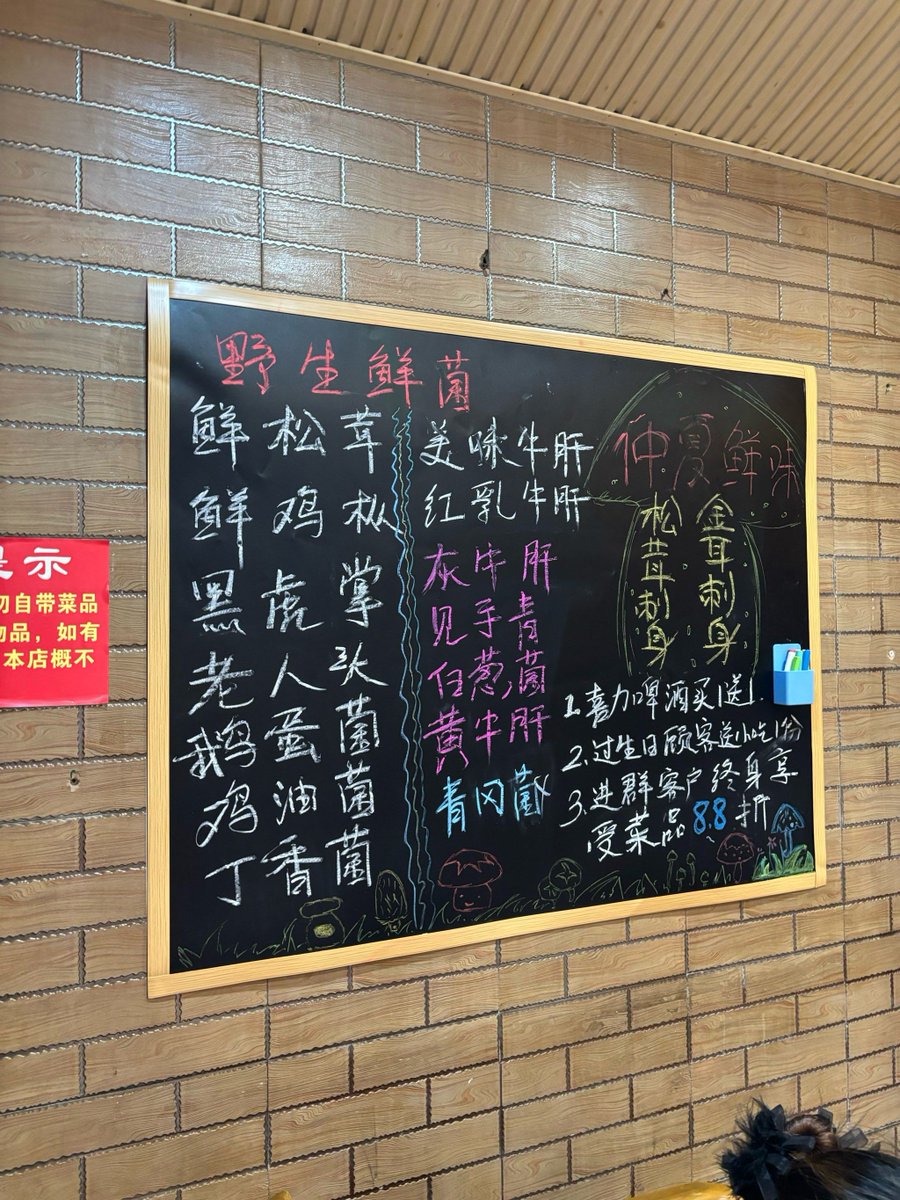 示
勿自带菜品
物品，如有
本店概不
野生鲜菌
鲜松茸
鲜鸡枞
黑虎掌
老人头
鹅蛋菌
鸡油菌
丁香菌
美味牛肝
红乳牛肝
灰牛肝
见手青
白葱菌
黄牛肝
青冈菌
仲夏鲜味
松茸刺身
金耳刺身
1.喜力啤酒买1送1
2.过生日顾客送小吃1份
3.进群客户终身享
受菜品8.8折